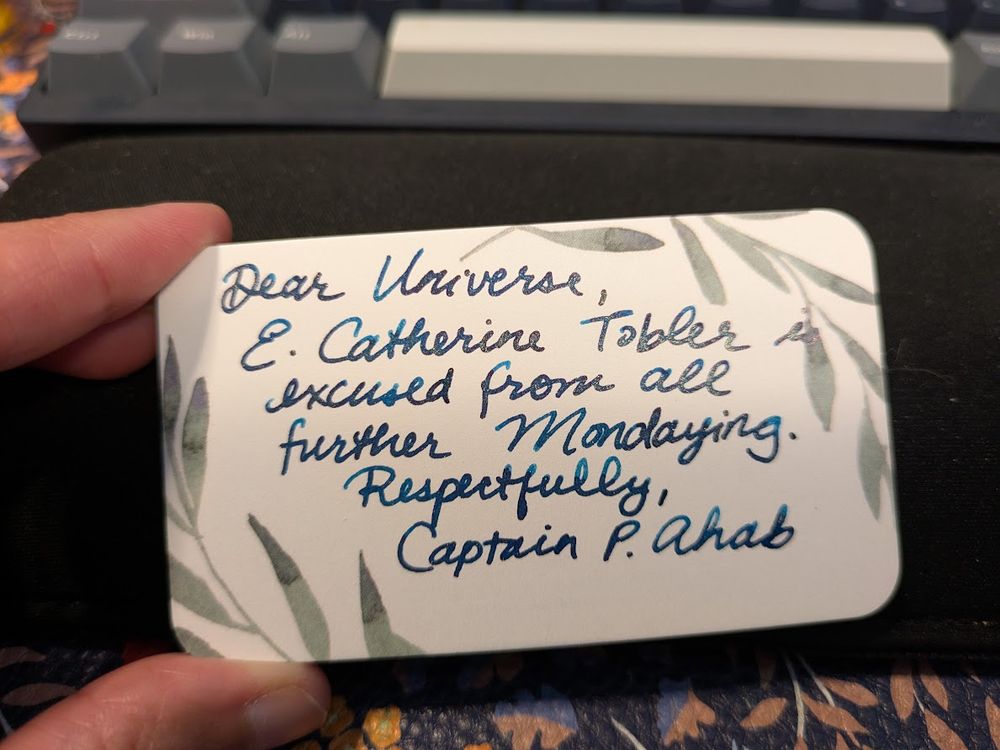 Dear Universe,
E. Catherine Tobler is
excused from all
further Mondaying.
Respectfully,
Captain P. Ahab